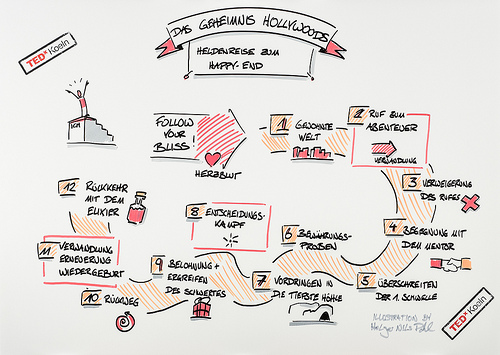 DAS GEHEIMNIS HOLLYWOODS
HELDENREISE ZUM
HAPPY-END
TEDxKoeln
ICH
FOLLOW
YOUR
BLISS!
HERZBLUT
1 GEWOHNTE
WELT
2 RUF ZUM
ABENTEUER
VERWANDLUNG
3 VERWEIGERUNG
DES RUFES
4 BEGEGNUNG MIT
DEM MENTOR
5 ÜBERSCHREITEN
DER 1. SCHWELLE
6 BEWÄHRUNGS-
PROBEN
7 VORDRINGEN IN
DIE TIEFSTE HÖHLE
8 ENTSCHEIDUNGS-
KAMPF
9 BELOHNUNG +
ERGREIFEN
DES SCHWERTES
10 RÜCKWEG
11 VERWANDLUNG
ERNEUERUNG
WIEDERGEBURT
12 RÜCKKEHR
MIT DEM
ELIXIER
TEDxKoeln
ILLUSTRATION BY